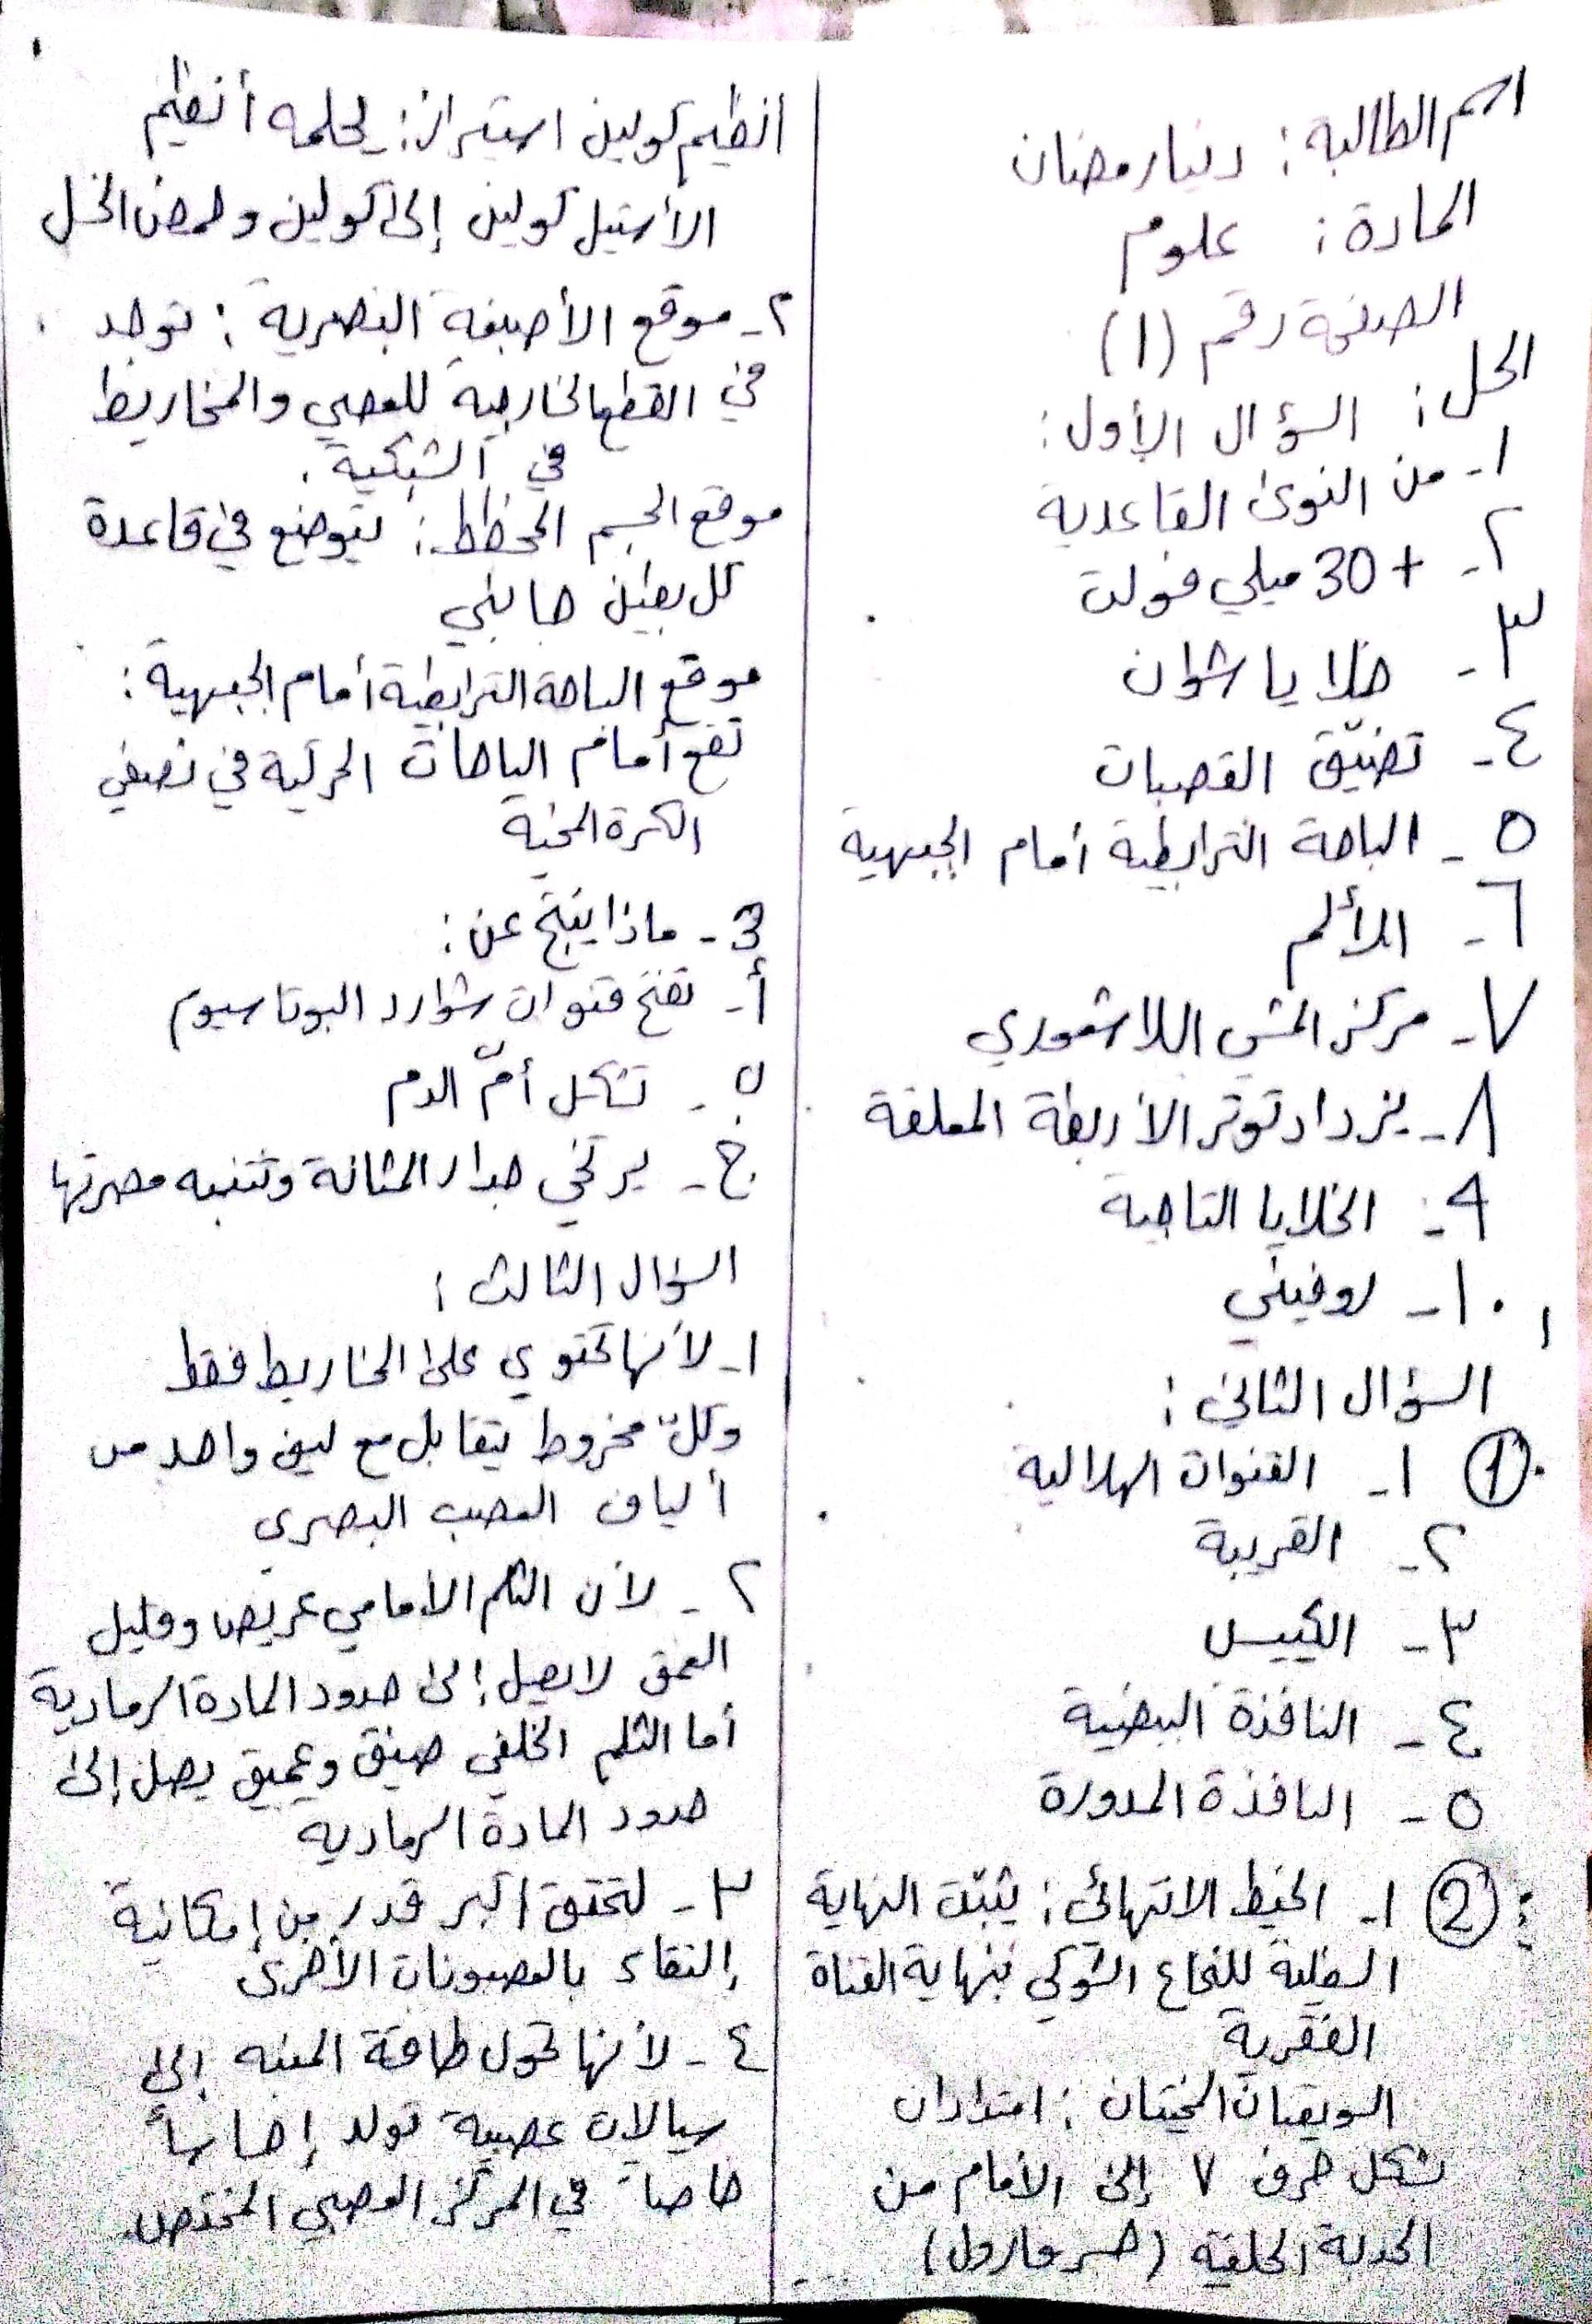 اسم الطالبة: دنيا رمضان
المادة: علوم
الصفحة رقم (١)
الحل: السؤال الأول:
١- من النوى القاعدية
٢- +30 ميلي فولت
٣- خلايا شوان
٤- تضيّق القصبات
٥- الباحة الترابطية أمام الجبهية
٦- الألم
٧- مركز المشي اللاشعوري
٨- يزداد توتر الأربطة المعلقة
٩- الخلايا التاجية
١٠- روفيني
السؤال الثاني:
① ١- القنوات الهلالية
٢- القريبة
٣- الكييس
٤- النافذة البيضية
٥- النافذة المدورة
② ١- الخيط الانتهائي: يثبت النهاية
السفلية للنخاع الشوكي بنهاية القناة
الفقرية
السويقتان المخيتان: امتدادان
بشكل حرف ٧ إلى الأمام من
الحدبة الحلقية (جسر فارول)
أنظيم كولين استيراز: يحلمه أنظيم
الأستيل كولين إلى كولين وحمض الخل
٢- موقع الأصبغة البصرية: توجد
في القطع الخارجية للعصي والمخاريط
في الشبكية.
موقع الجسم المخطط: يتوضع في قاعدة
كل بطين جانبي
موقع الباحة الترابطية أمام الجبهية:
تقع أمام الباحات الحركية في نصفي
الكرة المخية
3- ماذا ينتج عن:
أ- تفتح قنوات شوارد البوتاسيوم
ب- تشكل أمّ الدم
ج- يرتخي جدار المثانة وتتنبه مصرتها
السؤال الثالث:
١- لأنها تحتوي على المخاريط فقط
وكلّ مخروط يتقابل مع ليف واحد من
ألياف العصب البصري
٢- لأن الثلم الأمامي عريض وقليل
العمق لا يصل إلى حدود المادة الرمادية
أما الثلم الخلفي ضيق وعميق يصل إلى
حدود المادة الرمادية
٣- لتحقق أكبر قدر من إمكانية
التقاء بالعصبونات الأخرى
٤- لأنها تحول طاقة المنبه إلى
سيالات عصبية تولد إحساساً
خاصاً في المركز العصبي المختص.